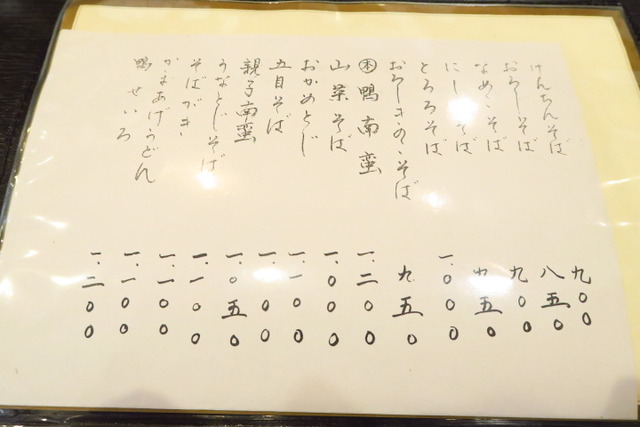 けんちんそば 九〇〇
おろしそば 八五〇
なめこそば 九〇〇
にしんそば 九五〇
とろろそば 一.〇〇〇
おろしきのこそば 九五〇
㊍鴨南蛮 一.二〇〇
山菜そば 一.〇〇〇
おかめとじ 一.一〇〇
五目そば 一.一〇〇
親子南蛮 一.〇五〇
うなとじそば 一.一〇〇
そばがき 一.一〇〇
かまあげうどん 一.一〇〇
鴨せいろ 一.二〇〇